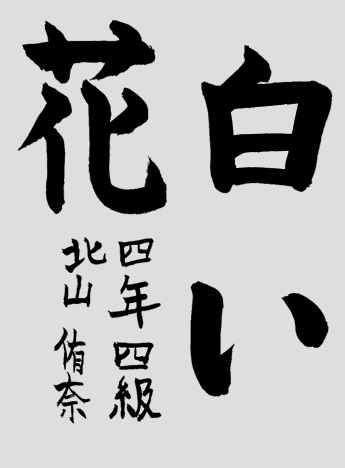 白い
花
四年 四級
北山 侑奈